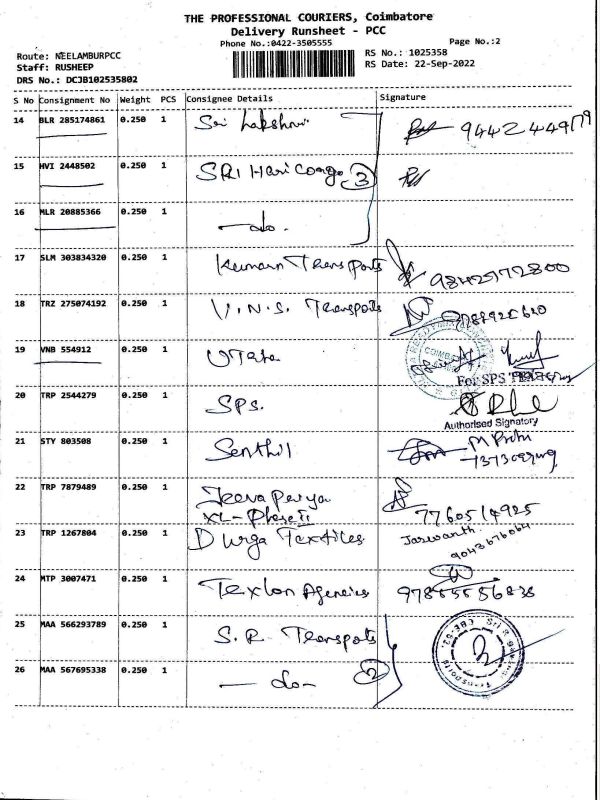 THE PROFESSIONAL COURIERS, Coimbatore
Delivery Runsheet - PCC
Phone No.:0422-3505555
Page No.:2
Route: NEELAMBURPCC
RS No.: 1025358
Staff: RUSHEEP
RS Date: 22-Sep-2022
DRS No.: DCJB102535802
S No Consignment No Weight PCS Consignee Details Signature
14 BLR 285174861 0.250 1 Sri Lakshmi
15 HVI 2448502 0.250 1 SRI Hari 3
16 MLR 20885366 0.250 1 -do-
17 SLM 303834320 0.250 1 Kumaran Transports 9842972800
18 TRZ 275074192 0.250 1 V.N.S. Transports
19 VNB 554912 0.250 1
For SPS
20 TRP 2544279 0.250 1 SPS.
Authorised Signatory
21 STY 803508 0.250 1 Senthil
22 TRP 7879489 0.250 1 Jeeva Periya
XL-Phase II
7760514925
23 TRP 1267804 0.250 1 Durga Textiles Jaswanth
9043676064
24 MTP 3007471 0.250 1 Texlon Agencies
25 MAA 566293789 0.250 1 S.R. Transports
26 MAA 567695338 0.250 1 -do- 2